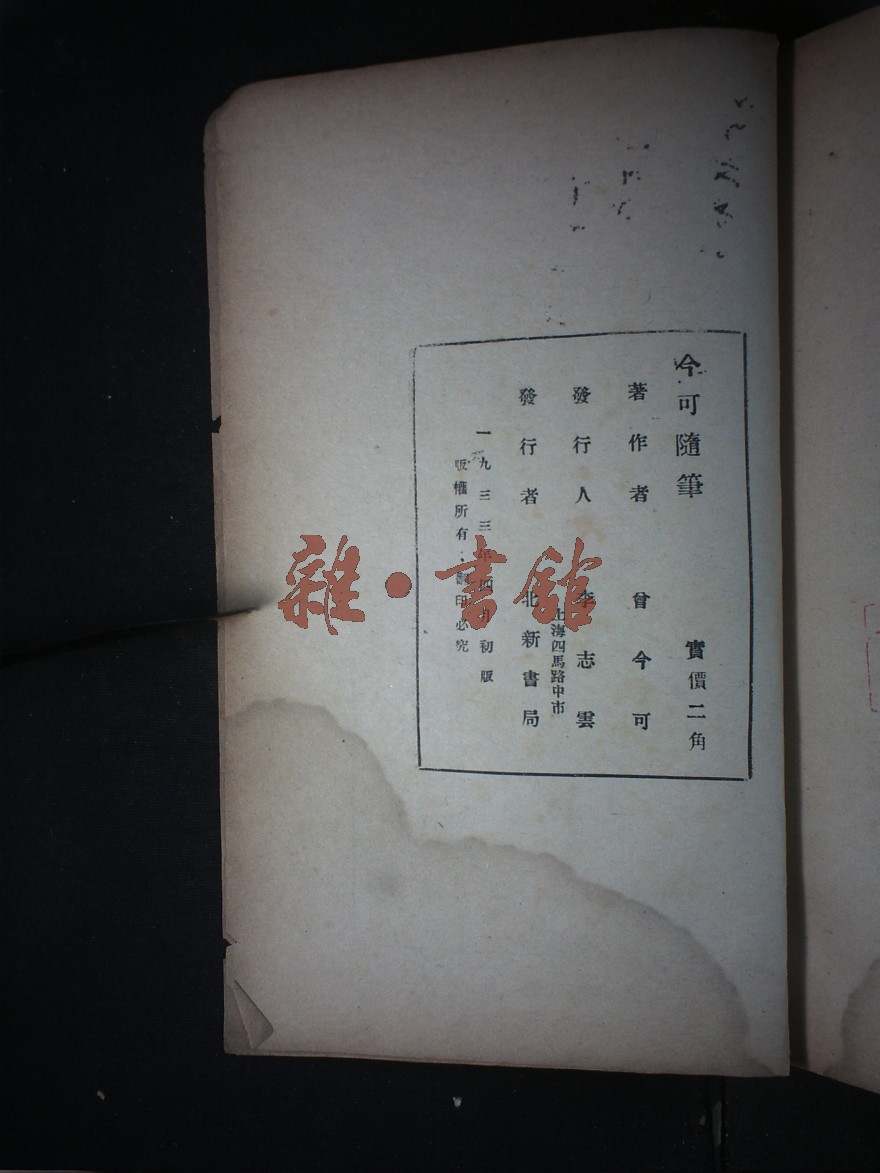 今可隨筆 實價二角
著作者 曾今可
發行人 李志雲
上海四馬路中市
發行者 北新書局
一九三三年四月初版
版權所有·翻印必究
雜·書館